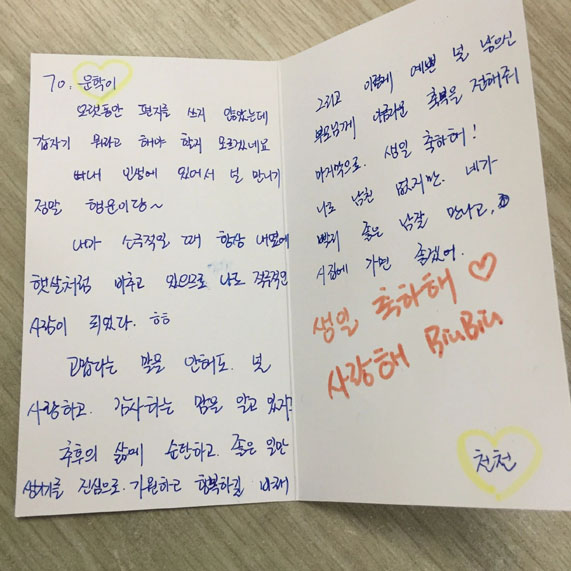 To. 문학이
오랫동안 편지를 쓰지 않았는데
갑자기 뭐라고 해야 할지 모르겠네요
빠내 인생에 있어서 널 만나기
정말 행운이당~
내가 소극적일 때 항상 내옆에
햇살처럼 비추고 있으므로 나도 적극적인
사람이 되었다. ㅎㅎ
고맙다는 말을 안해도. 널
사랑하고. 감사하는 맘을 알고 있지?
추후의 삶에 순탄하고. 좋은 일만
생기기를 진심으로. 기원하고 행복하길 바래
그리고 이렇게 예쁜 널 낳으신
부모님께 아름다운 축복을 전해줘
마지막으로. 생일 축하해!
나도 남친 없지만. 네가
빨리 좋은 남잘 만나고,
시집에 가면 좋겠어.
생일 축하해 ♡
사랑해 BiuBiu
천천